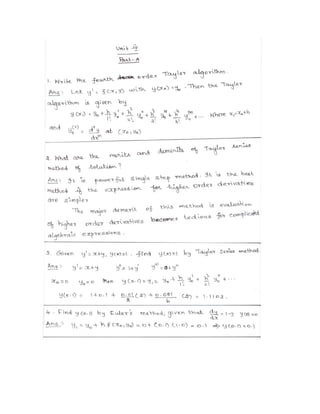 Unit-IV
Part-A
1. Write the fourth order Taylor algorithm.
Ans: Let y' = f(x,y) with y(x₀)=y₀. Then the Taylor
algorithm is given by
y(x₁) = y₀ + h/1! y₀' + h²/2! y₀'' + h³/3! y₀''' + h⁴/4! y₀ⁱᵛ + ... where x₁=x₀+h
and y₀⁽ʳ⁾ = dʳy/dxʳ at (x₀,y₀)
2. What are the merits and demerits of Taylor series
method of solution?
Ans: It is powerful single step method. It is the best
method if the expression for higher order derivatives
are simpler
The major demerit of this method is evaluation
of higher order derivatives become tedious for complicated
algebraic expressions.
3. Given y'=x+y, y(0)=1, find y(0.1) by Taylor Series method.
Ans: y'=x+y y''=1+y' y'''=y''
x₀=0 y₀=1 Then y(0.1)=y₁= y₀ + h/1! y₀' + h²/2! y₀'' + ...
y(0.1) = 1+0.1 + 0.01/2 (2) + 0.001/6 (2) = 1.1103.
4. Find y(0.1) by Euler's method, given that dy/dx = 1-y y(0)=0
Ans: y₁ = y₀ + h f(x₀,y₀) = 0 + (0.1)(1-0) = 0.1 ⇒ y(0.1)=0.1